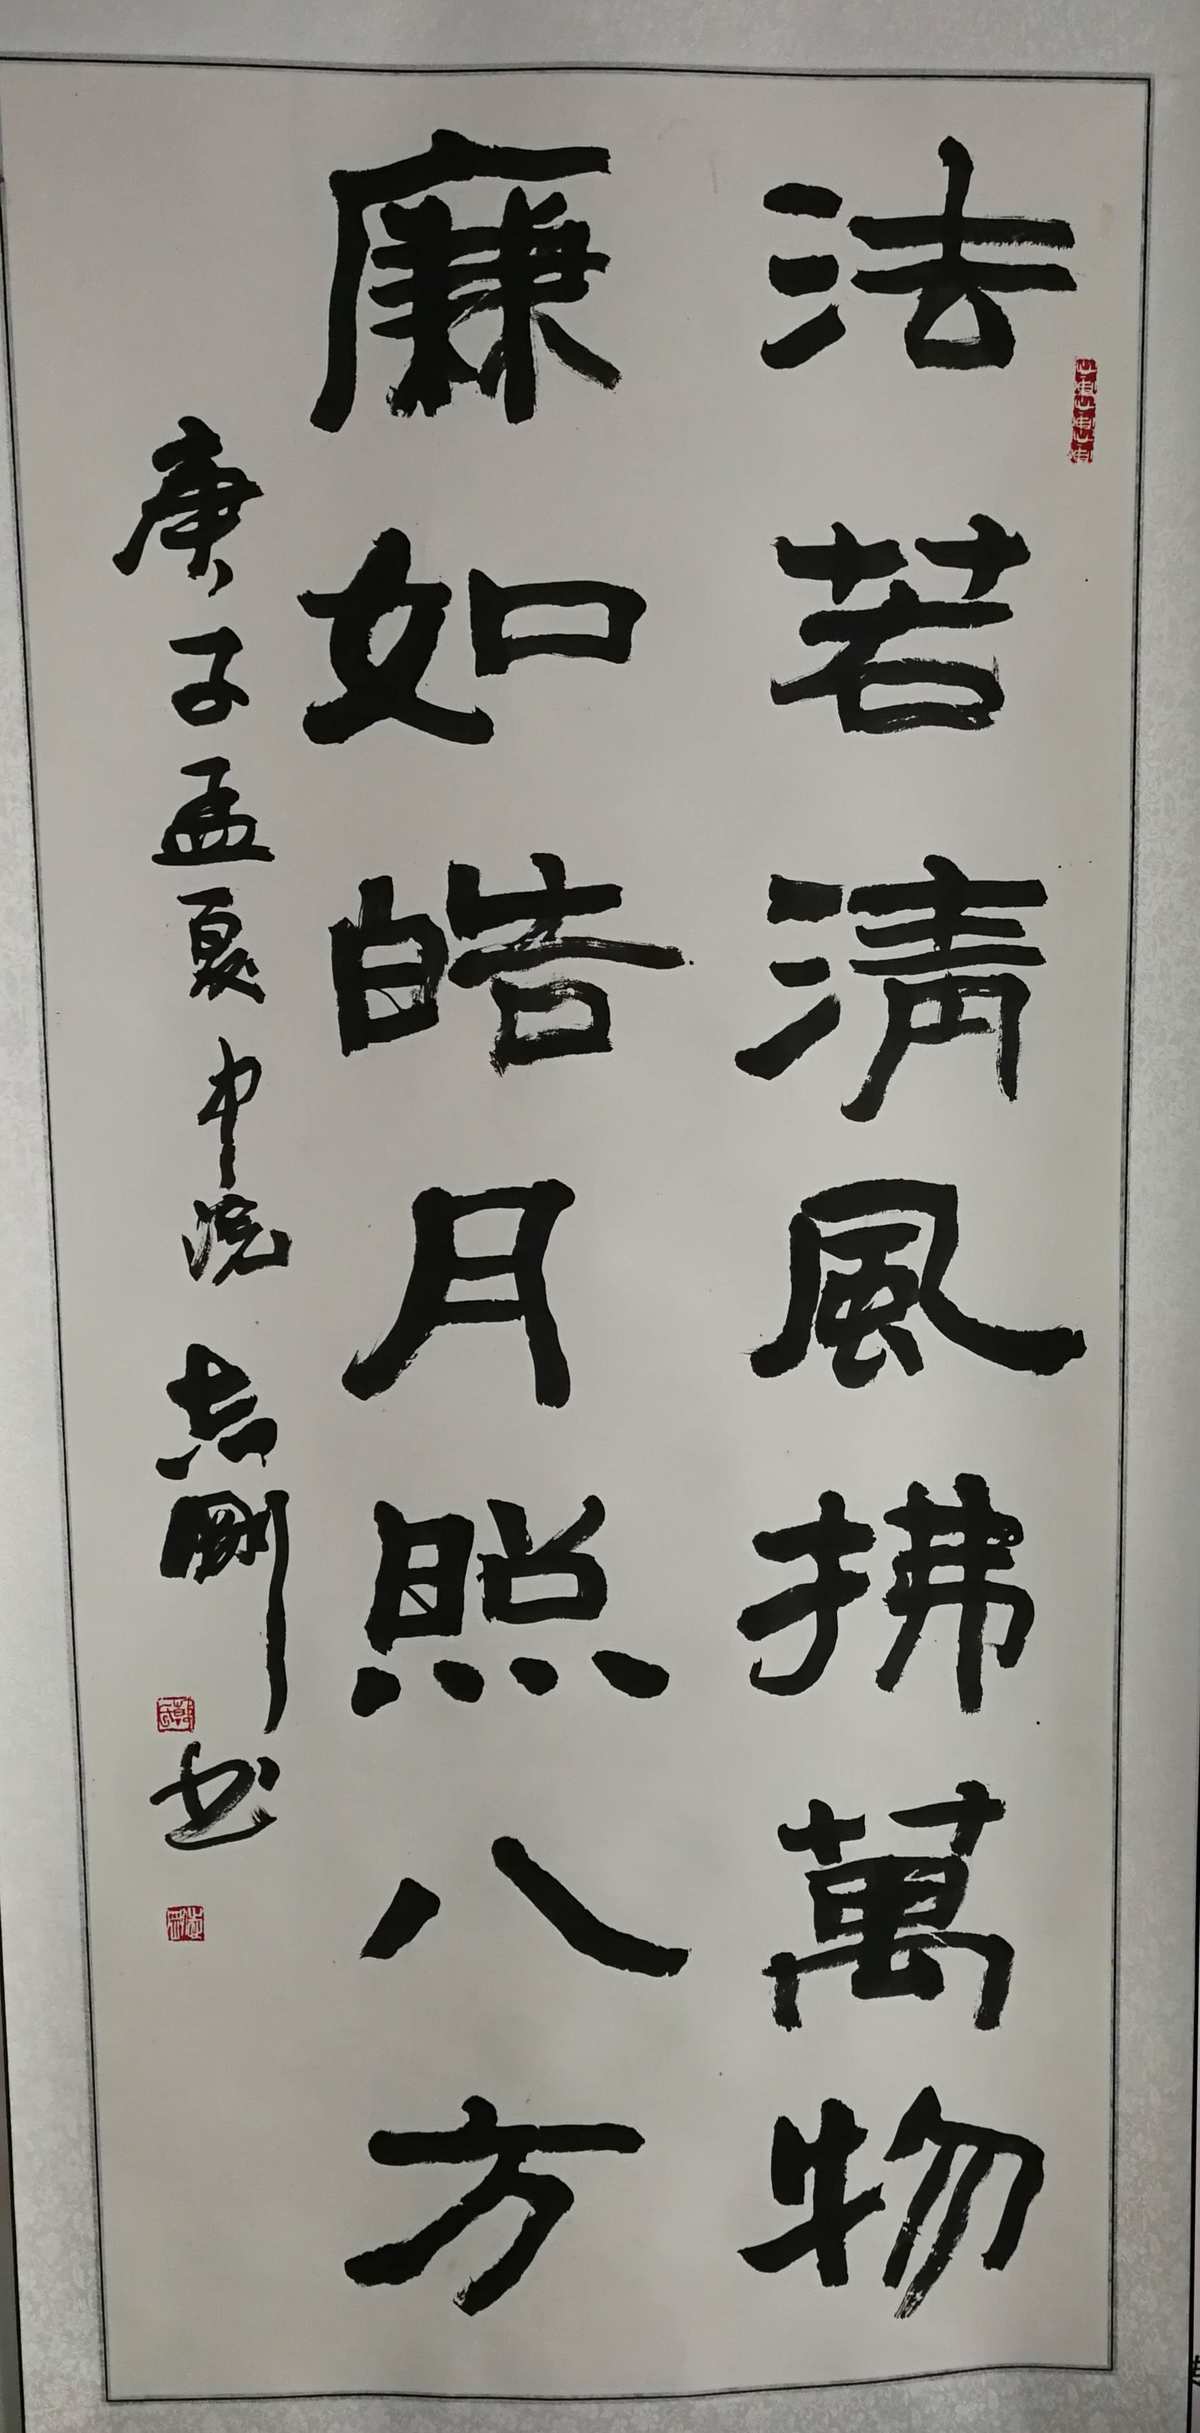 法若清風拂萬物
廉如皓月照八方
庚子孟夏中院志剛书